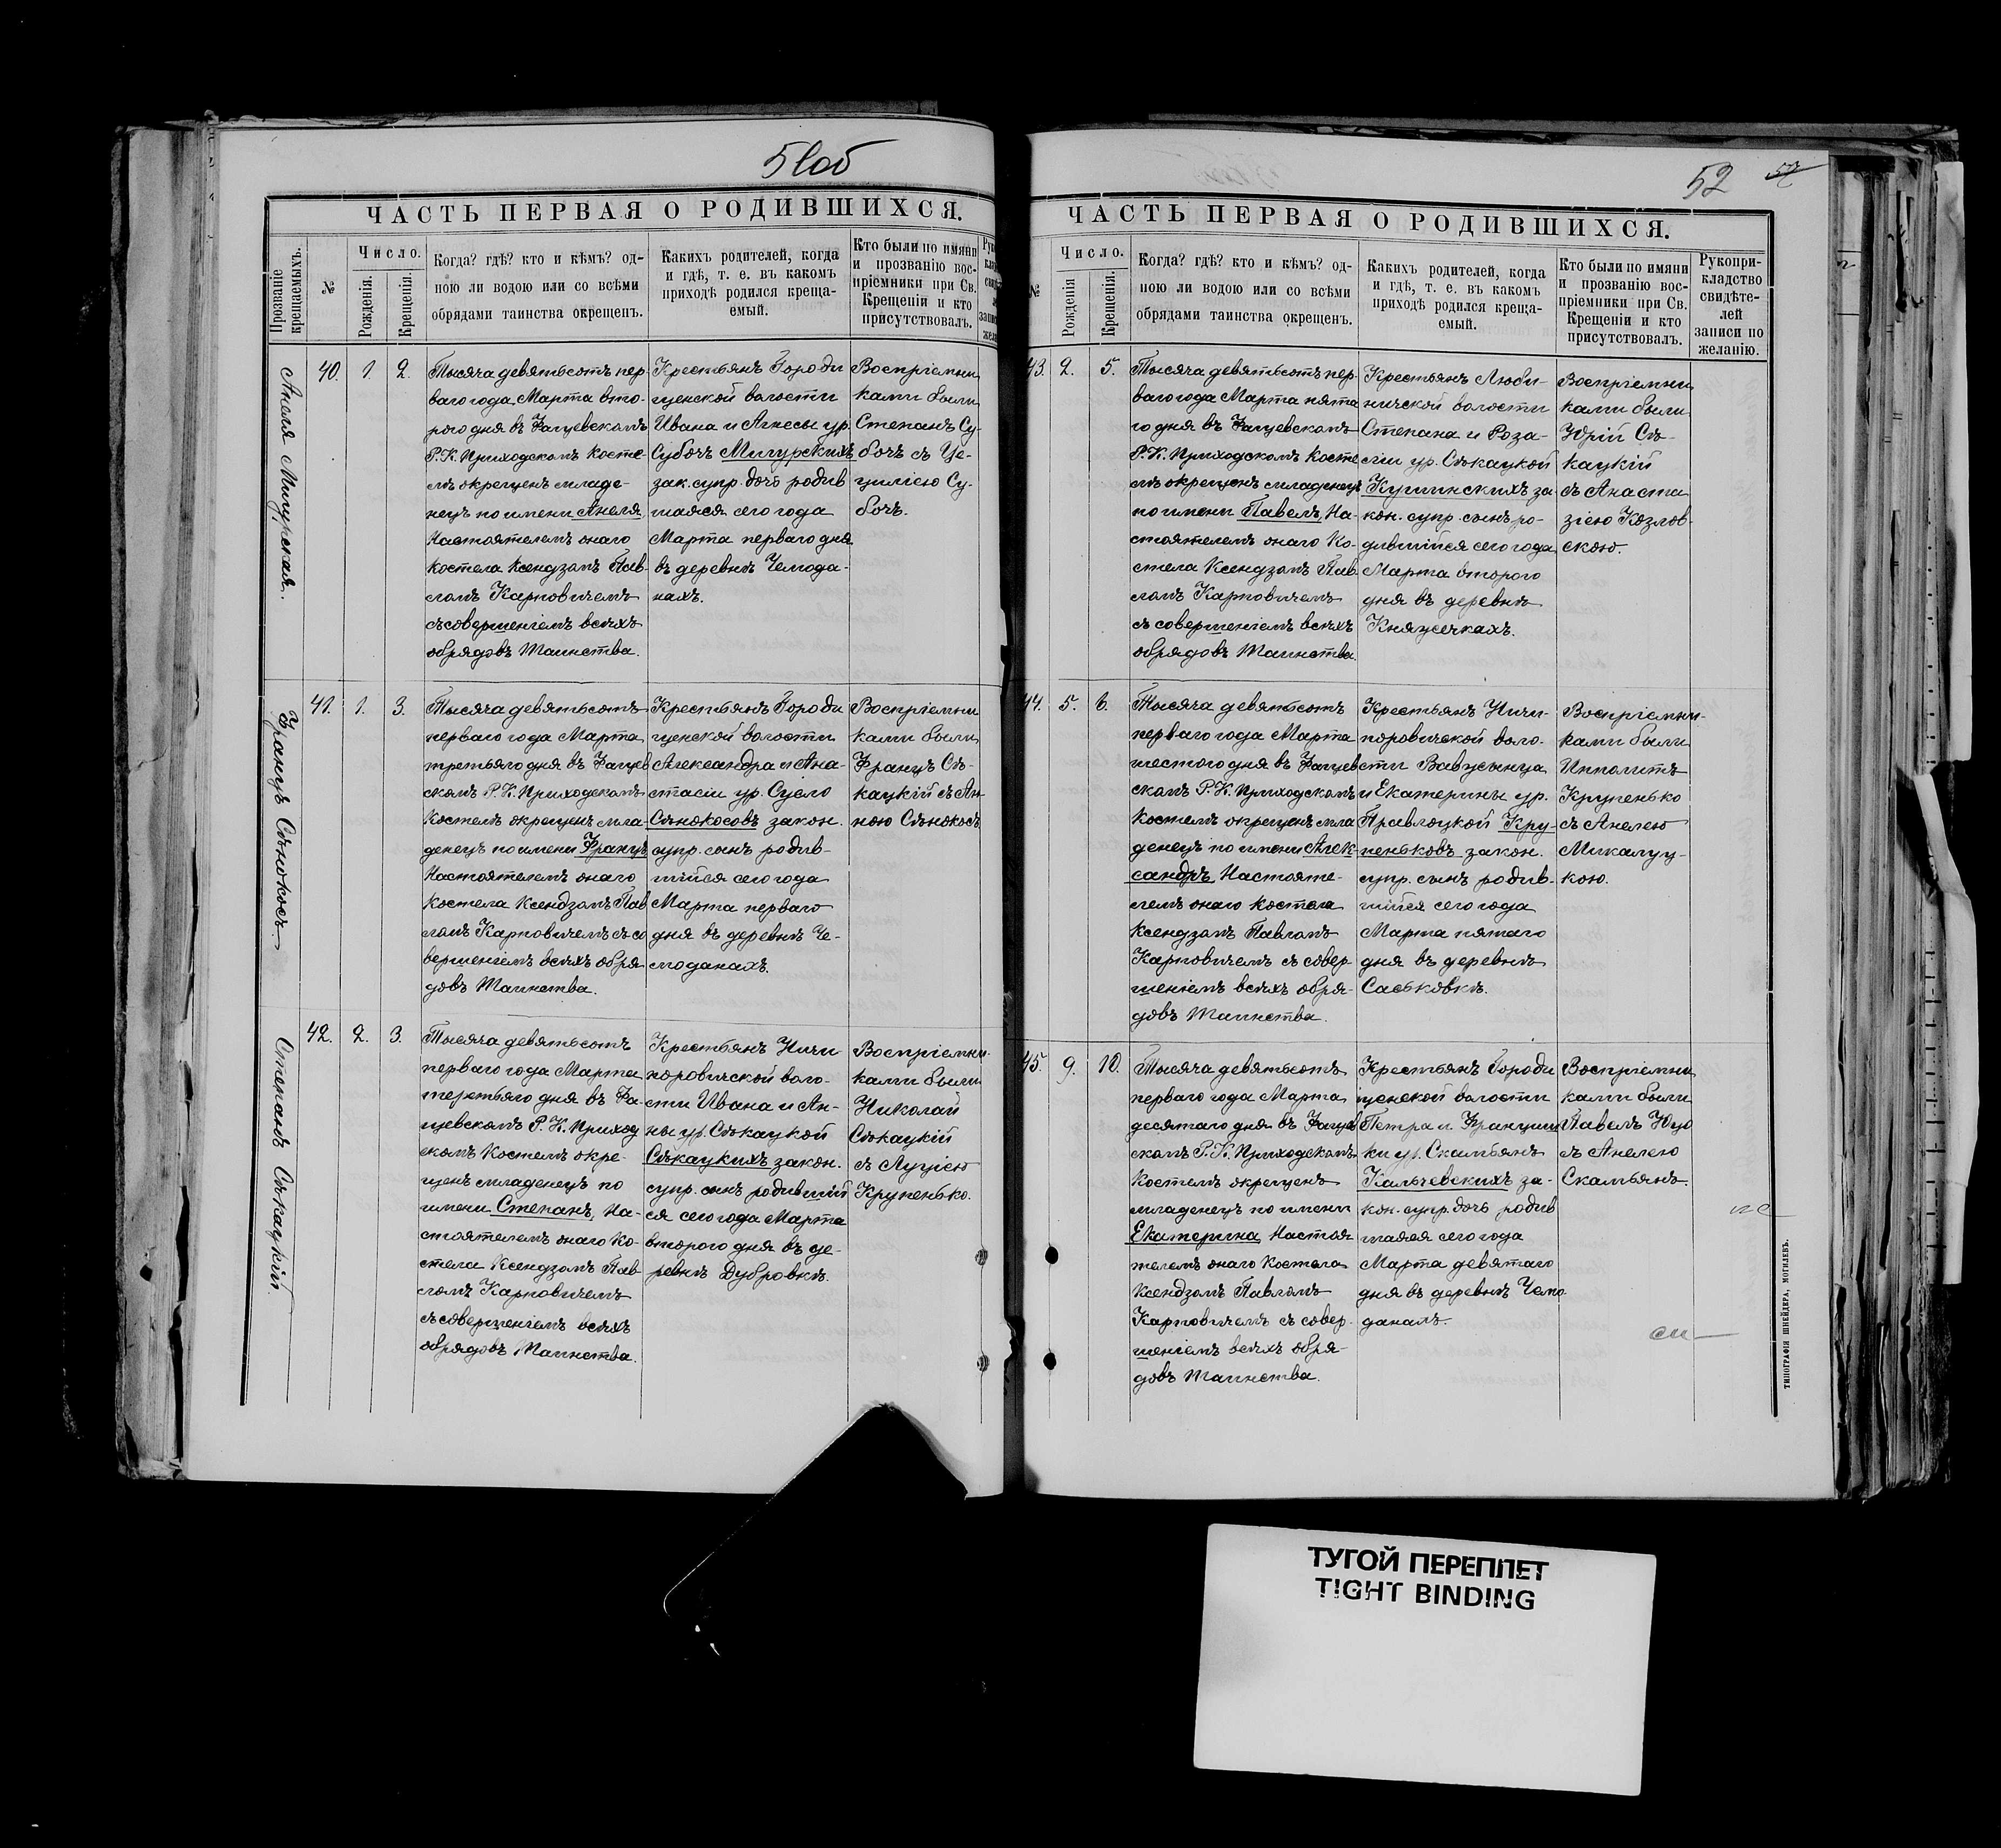 51об
ЧАСТЬ ПЕРВАЯ О РОДИВШИХСЯ.
Прозваніе крещаемыхъ.
№
Число.
Рожденія.
Крещенія.
Когда? гдѣ? кто и кѣмъ? од-
ною ли водою или со всѣми
обрядами таинства окрещенъ.
Какихъ родителей, когда
и гдѣ, т. е. въ какомъ
приходѣ родился креща-
емый.
Кто были по имяни
и прозванію вос-
пріемники при Св.
Крещеніи и кто
присутствовалъ.
Анеля Мигурская.
40.
1.
2.
Тысяча девятьсотъ пер-
ваго года Марта вто-
рого дня въ Фащевскомъ
Р.К. Приходскомъ Косте-
лѣ окрещенъ младе-
нецъ по имени Анеля
Настоятелемъ онаго
костела Ксендзомъ Пав-
ломъ Карповичемъ
съ совершеніемъ всѣхъ
обрядовъ Таинства.
Крестьянъ Городи
щенской волости
Ивана и Агнесы ур.
Субочъ Мигурскихъ
зак. супр. дочь родив
шаяся сего года
Марта перваго дня
въ деревнѣ Чемода-
нахъ.
Воспріемни
ками были
Степанъ Су-
бочъ съ Це-
циліею Су-
бочъ.
Францъ Сѣнокосъ.
41.
1.
3.
Тысяча девятьсотъ
перваго года Марта
третьяго дня въ Фащев
скомъ Р.К. Приходскомъ
Костелѣ окрещенъ мла-
денецъ по имени Францъ
Настоятелемъ онаго
костела Ксендзомъ Пав
ломъ Карповичемъ съ со
вершеніемъ всѣхъ обря
довъ Таинства.
Крестьянъ Городи
щенской волости
Александра и Ана-
стасіи ур. Сусло
Сѣнокосовъ закон.
супр. сынъ родив-
шійся сего года
Марта перваго
дня въ деревнѣ Че-
моданахъ.
Воспріемни
ками были
Францъ Сѣ-
кацкій съ Ан
ною Сѣнокосъ
Степанъ Сѣкацкій
42.
2.
3.
Тысяча девятьсотъ
перваго года Марта
третьяго дня въ Фа-
щевскомъ Р.К. Приход
скомъ Костелѣ окре-
щенъ младенецъ по
имени Степанъ, На-
стоятелемъ онаго Ко-
стела Ксендзомъ Пав
ломъ Карповичемъ
съ совершеніемъ всѣхъ
обрядовъ Таинства.
Крестьянъ Ничи
поровичской воло-
сти Ивана и Ан-
ны ур. Сѣкацкой
Сѣкацкихъ закон.
супр. сынъ родившій
ся сего года Марта
второго дня въ де-
ревнѣ Дубровкѣ.
Воспріемни-
ками были
Николай
Сѣкацкій
съ Луціею
Крупенько.
52
ЧАСТЬ ПЕРВАЯ О РОДИВШИХСЯ.
№
Число.
Рожденія
Крещенія.
Когда? гдѣ? кто и кѣмъ? од-
ною ли водою или со всѣми
обрядами таинства окрещенъ.
Какихъ родителей, когда
и гдѣ, т. е. въ какомъ
приходѣ родился креща-
емый.
Кто были по имяни
и прозванію вос-
пріемники при Св.
Крещеніи и кто
присутствовалъ.
Рукопри-
кладство
свидѣте-
лей
записи по
желанію.
43.
2.
5.
Тысяча девятьсотъ пер-
ваго года Марта пята
го дня въ Фащевскомъ
Р.К. Приходскомъ Косте
лѣ окрещенъ младенецъ
по имени Павелъ, На-
стоятелемъ онаго Ко-
стела Ксендзомъ Пав
ломъ Карповичемъ
съ совершеніемъ всѣхъ
обрядовъ Таинства.
Крестьянъ Люби-
ничской волости
Степана и Роза-
ліи ур. Сѣкацкой
Кушинскихъ за-
кон. супр. сынъ ро-
дившійся сего года
Марта второго
дня въ деревнѣ
Княжечкахъ.
Воспріемни
ками были
Юрій Сѣ-
кацкій
съ Анаста
зіею Козлов-
скою.
44.
5.
6.
Тысяча девятьсотъ
перваго года Марта
шестого дня въ Фащев
скомъ Р.К. Приходскомъ
Костелѣ окрещенъ мла
денецъ по имени Алек-
сандръ, Настояте-
лемъ онаго костела
Ксендзомъ Павломъ
Карповичемъ съ совер-
шеніемъ всѣхъ обря-
довъ Таинства.
Крестьянъ Ничи-
поровичской воло-
сти Вавжынца
и Екатерины ур.
Правлоцкой Кру-
пеньковъ закон.
супр. сынъ родив-
шійся сего года
Марта пятаго
дня въ деревнѣ
Саськовкѣ.
Воспріемни-
ками были
Ипполитъ
Крупенько
съ Анелею
Микалуц-
кою.
45.
9.
10.
Тысяча девятьсотъ
перваго года Марта
десятаго дня въ Фащев
скомъ Р.К. Приходскомъ
Костелѣ окрещенъ
младенецъ по имени
Екатерина, Настоя
телемъ онаго Костела
Ксендзомъ Павломъ
Карповичемъ съ совер-
шеніемъ всѣхъ обря-
довъ Таинства.
Крестьянъ Городи
щенской волости
Петра и Францыш
ки ур. Скамьянъ
Кальчевскихъ за-
кон. супр. дочь родив
шаяся сего года
Марта девятаго
дня въ деревнѣ Чемо
данахъ.
Воспріемни
ками были
Павелъ Юцо
съ Анелею
Скамьянъ.
ТИПОГРАФІЯ ШНЕЙДЕРА, МОГИЛЕВЪ.
ТУГОЙ ПЕРЕПЛЕТ
TIGHT BINDING